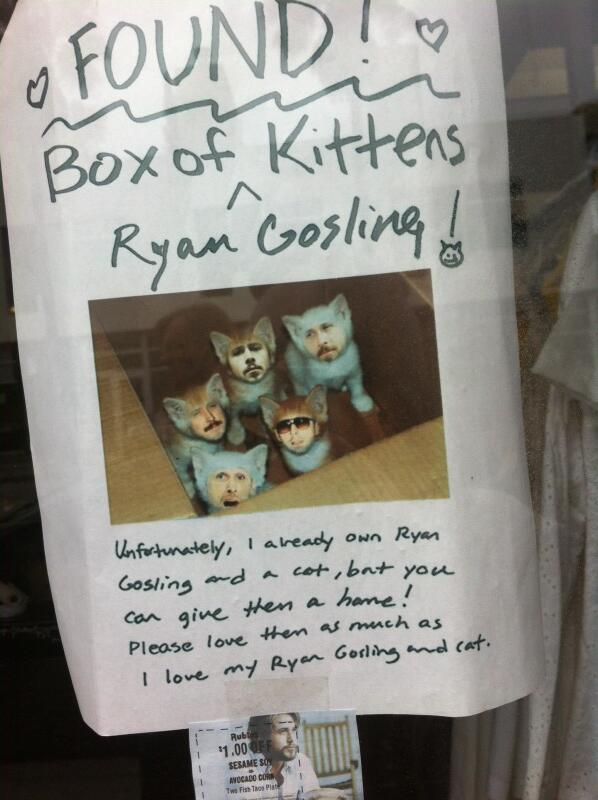 FOUND!
Box of Kittens
^
Ryan Gosling!
Unfortunately, I already own Ryan
Gosling and a cat, but you
can give them a home!
Please love them as much as
I love my Ryan Gosling and cat.
$1.00 OFF
SESAME SOY
AVOCADO CORN
Two Fish Taco Plate